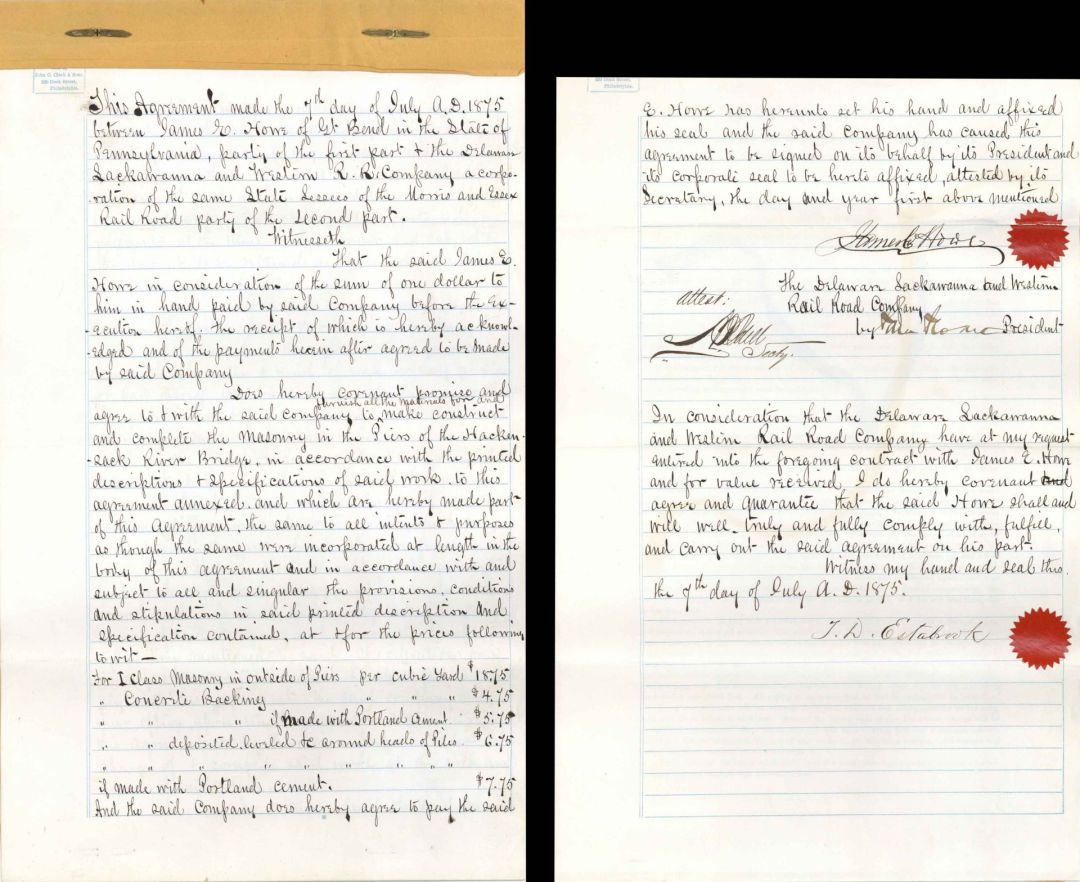 John C. Clark & Sons,
230 Dock Street,
Philadelphia.
This Agreement made the 7th day of July A.D. 1875
between James E. Howe of Gt Bend in the State of
Pennsylvania, party of the first part & the Delaware
Lackawanna and Western R. R. Company a corpo-
ration of the same State Lessees of the Morris and Essex
Rail Road party of the second part.
Witnesseth
That the said James E.
Howe in consideration of the sum of one dollar to
him in hand paid by said Company before the Ex-
ecution hereof. the receipt of which is hereby acknowl-
edged and of the payments herein after agreed to be made
by said Company
Does hereby covenant promise and
furnish all the materials for and
agree to & with the said company to make construct
and complete the Masonry in the Piers of the Hacken-
sack River Bridge, in accordance with the printed
descriptions & specifications of said work, to this
agreement annexed, and which are hereby made part
of this Agreement, the same to all intents & purposes
as though the same were incorporated at length in the
body of this agreement and in accordance with and
subject to all and singular the provisions, conditions
and stipulations in said printed description and
specification contained, at & for the prices following
to wit—
For I Class Masonry in outside of Piers per cubic Yard $18.75
" Concrete Backing " " " $4.75
" " " if made with Portland cement. $5.75
" " deposited, leveled &c around heads of Piles. $6.75
" " " " " " " " "
if made with Portland cement. $7.75
And the said Company does hereby agree to pay the said
230 Dock Street,
Philadelphia.
E. Howe has hereunto set his hand and affixed
his seal and the said Company has caused this
agreement to be signed on its behalf by its President and
its corporate seal to be hereto affixed, attested by its
Secretary, the day and year first above mentioned
James E Howe
The Delaware Lackawanna and Western
attest:
Rail Road Company
by President
Secty.
In consideration that the Delaware Lackawanna
and Western Rail Road Company have at my request
entered into the foregoing contract with James E. Howe
and for value received, I do hereby covenant and
agree and guarantee that the said Howe shall and
will well, truly and fully comply with, fulfill,
and carry out the said agreement on his part.
Witness my hand and seal this
the 7th day of July A.D. 1875.
T. D. Estabrook